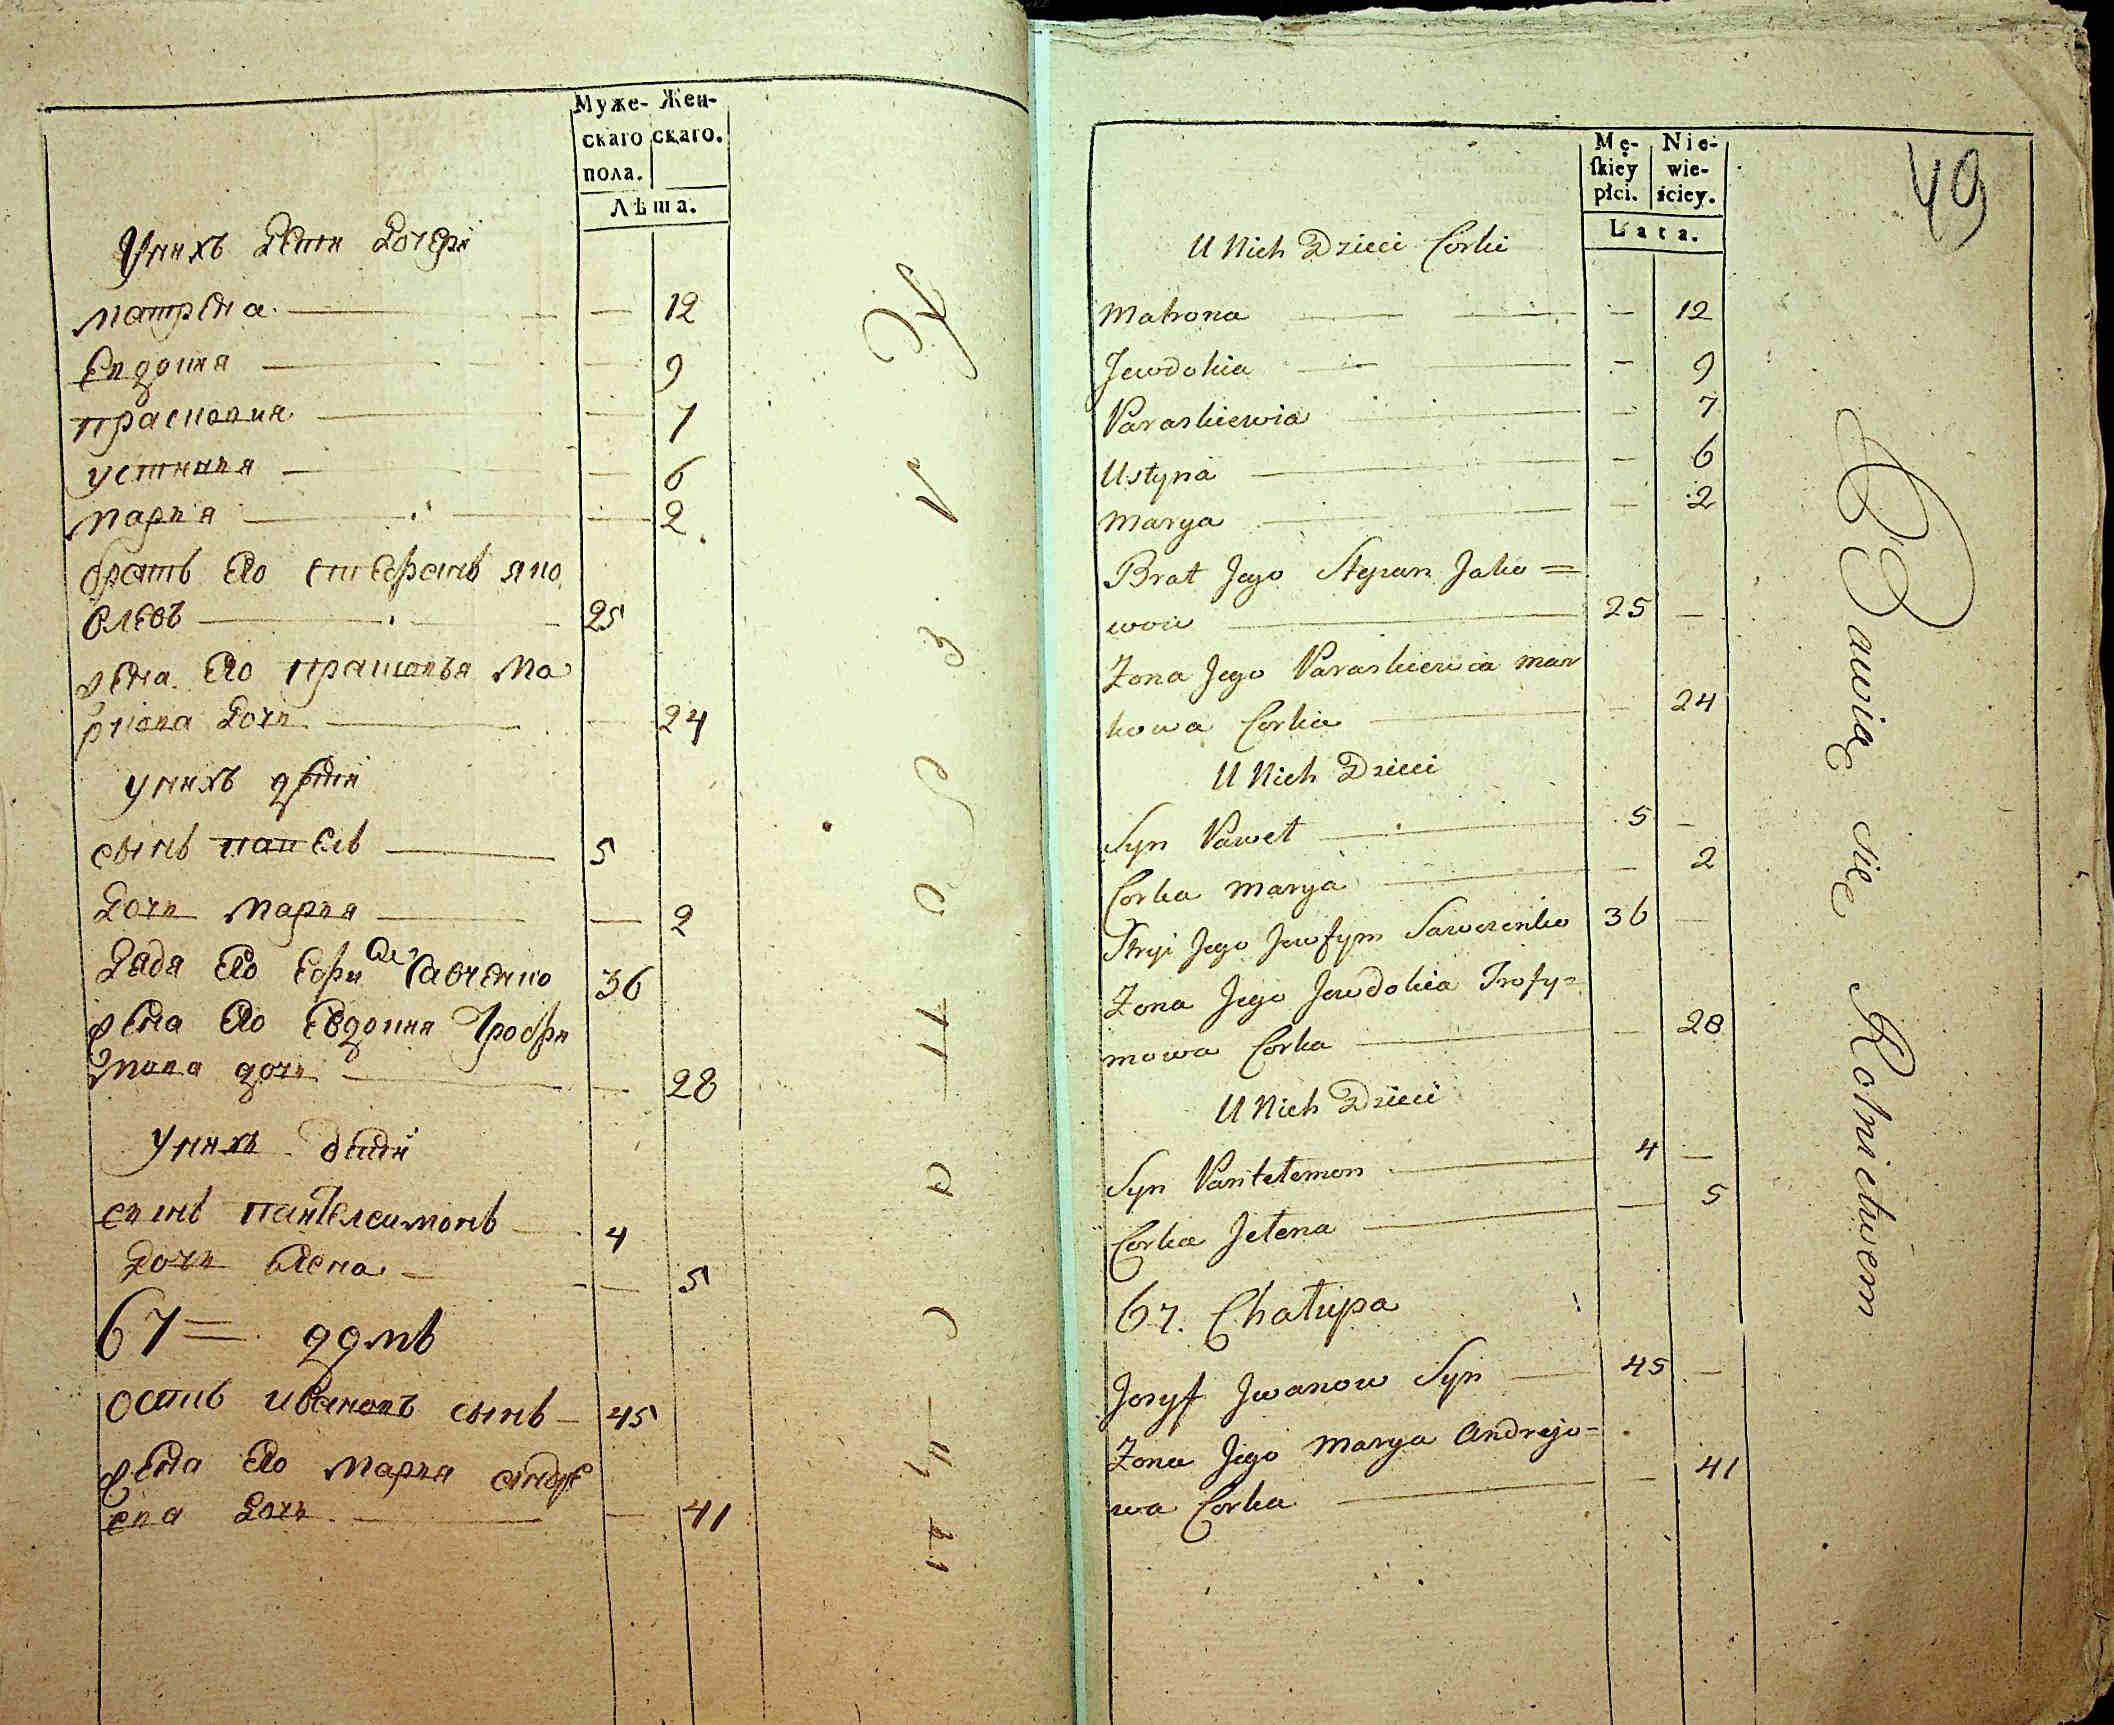 Муже- Жен-
скаго скаго.
пола.
Лѣта.
Унихъ Дети Дочери
Матрена — 12
Евдокия — 9
Прасковия — 7
Устиния — 6
Мария — 2
братъ Его Стефанъ яко
влевъ — 25
жена Его Прасковья Ма
ркова Дочь — 24
унихъ дети
сынъ павелъ — 5
Дочь Мария — 2
Дядя Его Ефи Савченко 36
жена Его Евдокия Трофи
мова дочь — 28
унихъ дети
сынъ пантелеимонъ — 4
Дочь Елена — 5
67 = домъ
Осипъ Ивановъ сынъ — 45
жена Его Мария андре
ева Дочь — 41
49
Mę- Nie-
ſkiey wie-
płci. ściey.
Lata.
U Nich Dzieci Corki
Matrona — 12
Jewdokia — 9
Paraskiewia — 7
Ustyna — 6
Marya — 2
Brat Jego Stepan Jako=
wow 25 —
Zona Jego Paraskiewia Mar
kowa Corka — 24
U Nich Dzieci
Syn Paweł 5 —
Corka Marya — 2
Stryi Jego Jewfym Sawczenko 36 —
Zona Jego Jewdokia Trofy=
mowa Corka — 28
U Nich Dzieci
Syn Pantelemon 4 —
Corka Jełena — 5
67. Chałupa
Jozyf Jwanow Syn 45 —
Zona Jego Marya Andrejo=
wa Corka — 41
Bawią się Rolnictwem